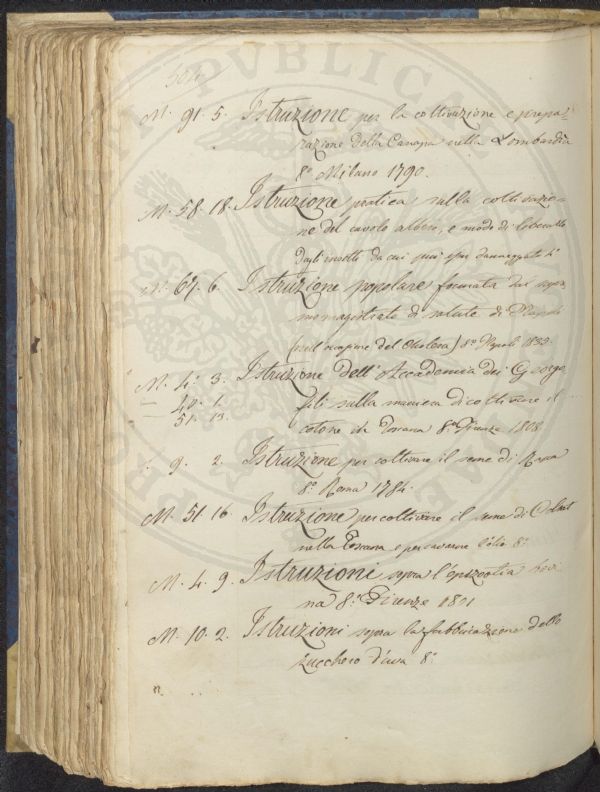 M. 91. 5. Istruzione per la coltivazione e prepa-
razione della Canapa nella Lombardia
8° Milano 1790.
M. 58. 18. Istruzione pratica sulla coltivazio-
ne del cavolo albero, e modo di liberarlo
dagli insetti da cui può esser danneggiato 8°
M. 67. 6. Istruzione popolare formata dal supre
mo magistrato di salute di Napoli
(nell' invasione del Cholera) 8° Napoli 1833.
M. 4. 3. Istruzione dell' Accademia dei Georgo
— 40. 1. fili sulla maniera di coltivare il
— 51. 13. cotone in Toscana 8° Firenze 1808
9. 2. Istruzione per coltivare il seme di Rapa
8° Roma 1784.
M. 51. 16 Istruzione per coltivare il seme di Colsat
nella Toscana e per cavarne l'olio 8°
M. 4. 9. Istruzioni sopra l'epizootia bovi
na 8° Firenze 1801
M. 10. 2. Istruzioni sopra la fabbricazione dello
zucchero d'uva 8°